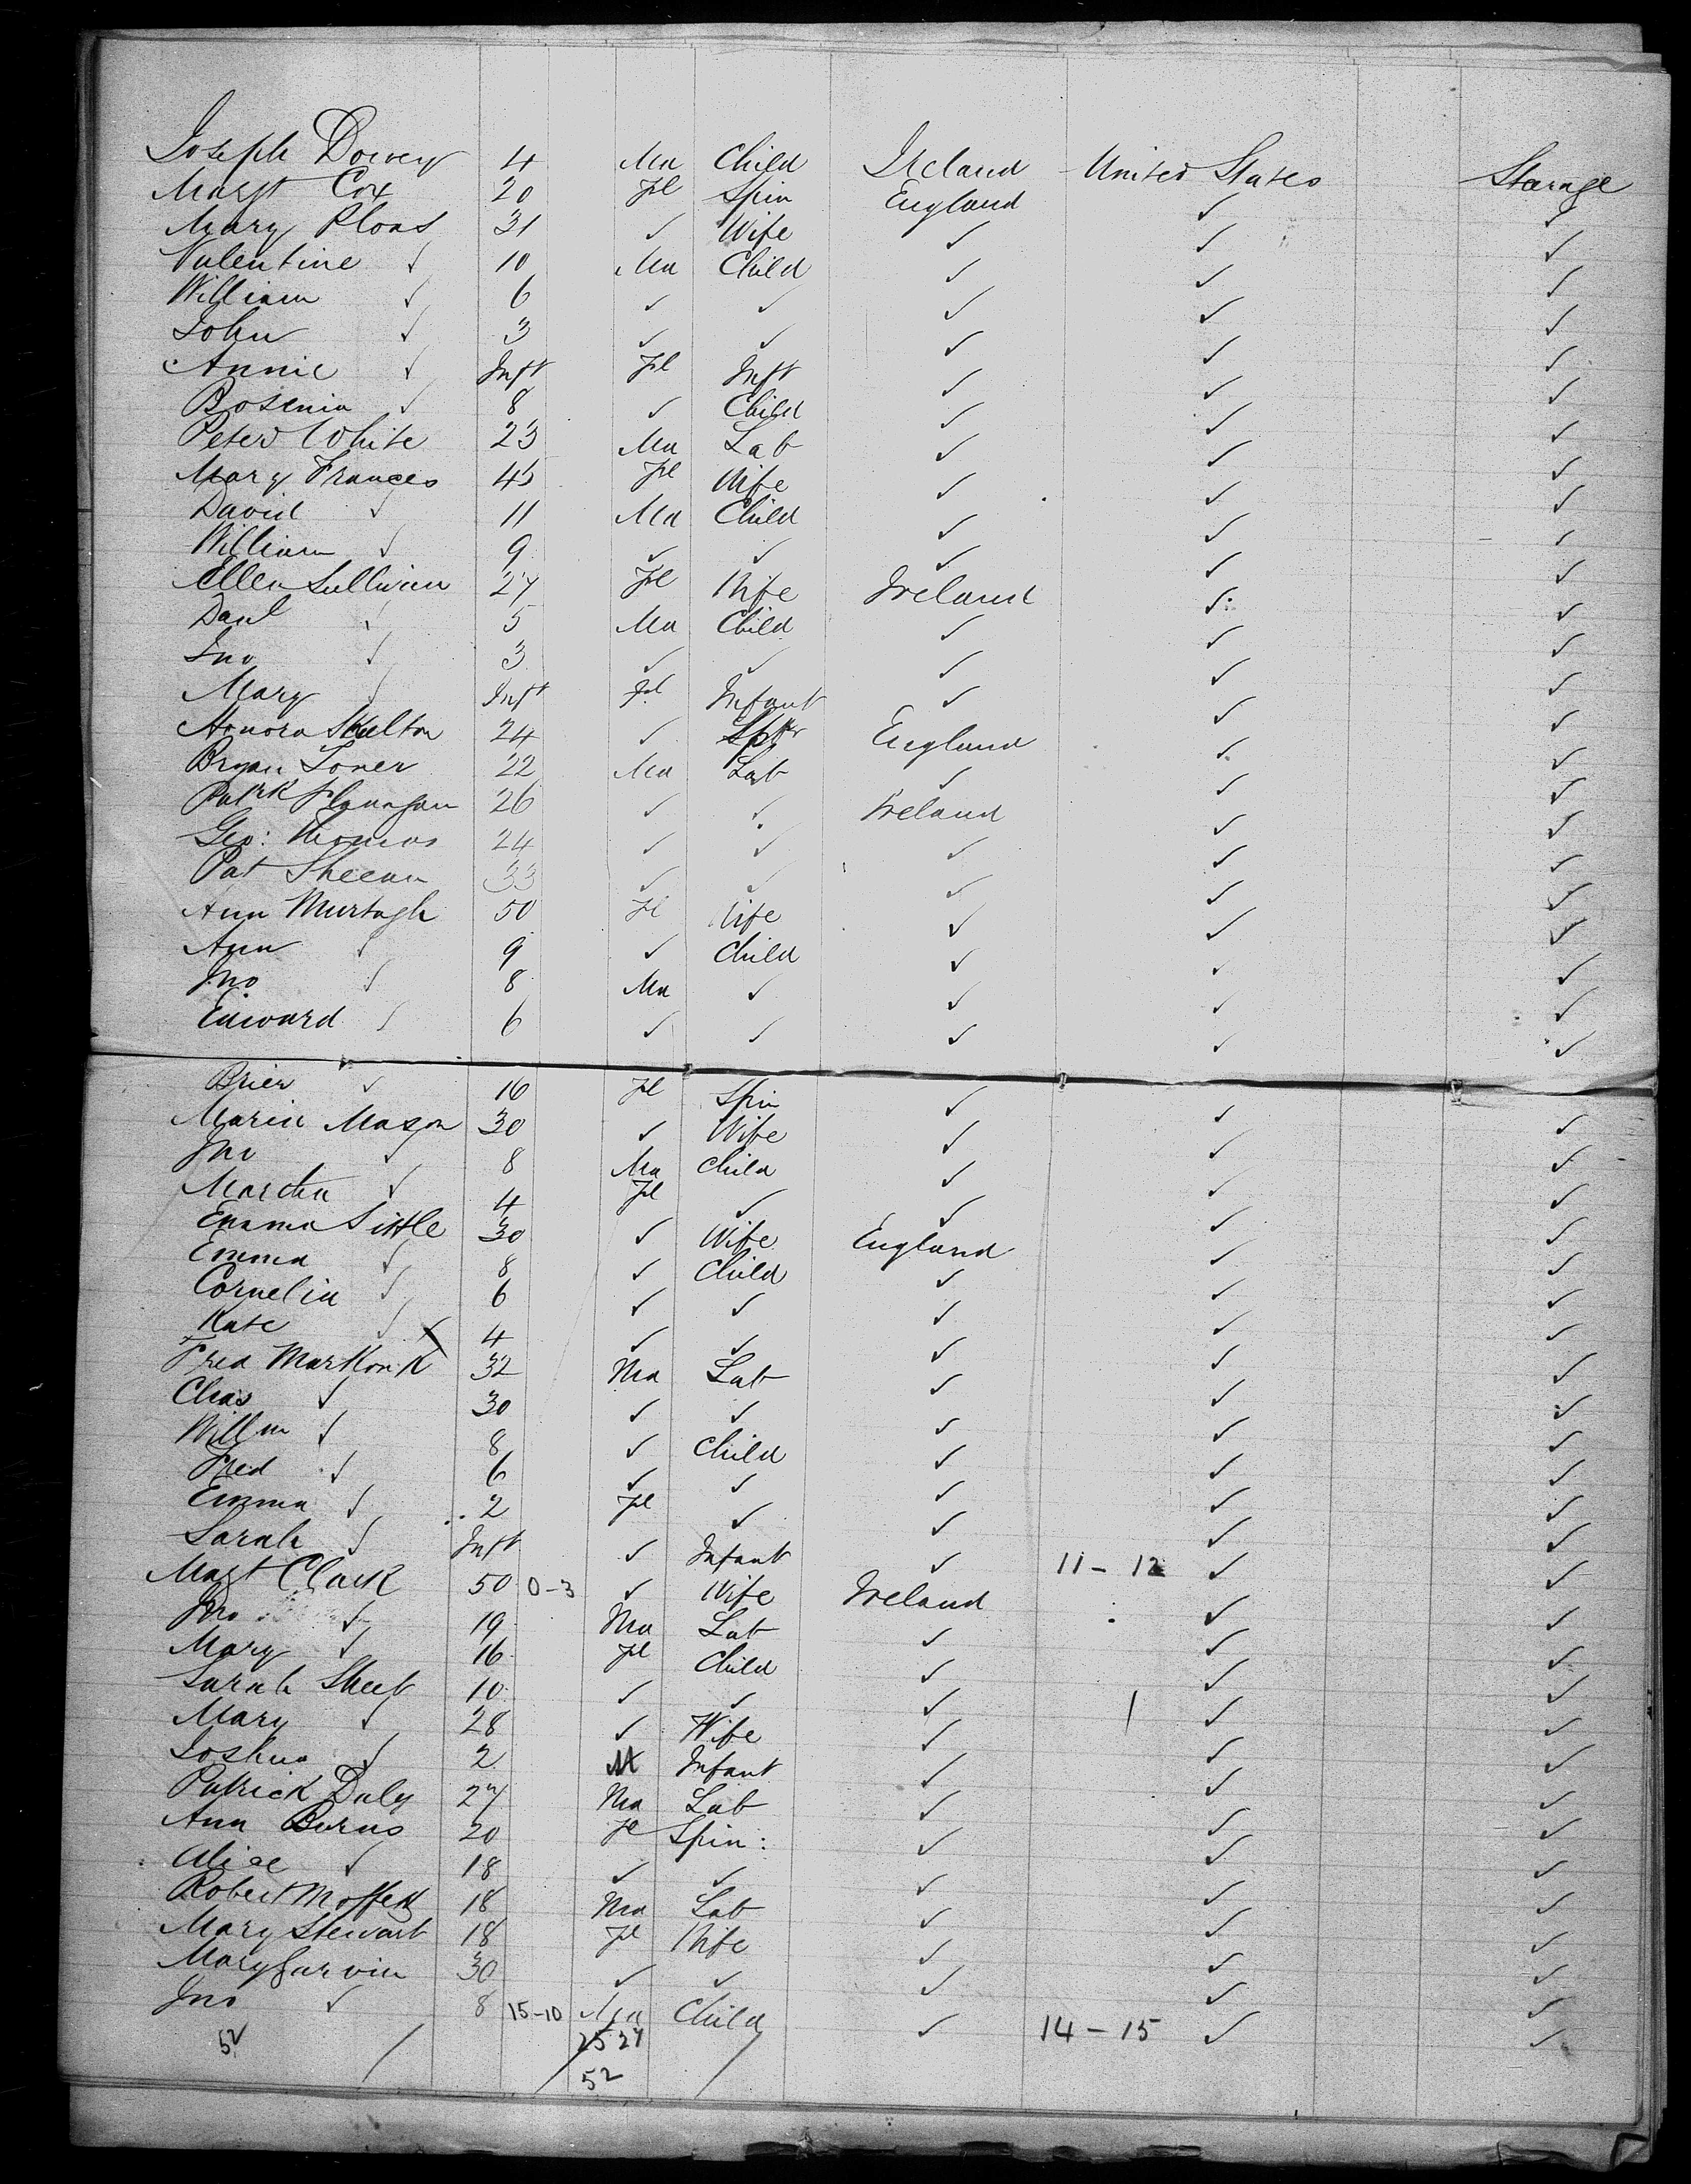 Joseph Dorvey 4 Ma Child Ireland United States Starage
Margt Cox 20 Fl Spin England ✓ ✓
Mary Ploas 31 ✓ Wife ✓ ✓ ✓
Valentine ✓ 10 Ma Child ✓ ✓ ✓
William ✓ 6 ✓ ✓ ✓ ✓ ✓
John ✓ 3 ✓ ✓ ✓ ✓ ✓
Annie ✓ Inft Fl Inft ✓ ✓ ✓
Bosenia ✓ 8 ✓ Child ✓ ✓ ✓
Peter White 23 Ma Lab ✓ ✓ ✓
Mary Frances 45 Fl Wife ✓ ✓ ✓
David ✓ 11 Ma Child ✓ ✓ ✓
William ✓ 9 ✓ ✓ ✓ ✓ ✓
Ellen Sullivan 27 Fl Wife Ireland ✓ ✓
Danl ✓ 5 Ma Child ✓ ✓ ✓
Jno ✓ 3 ✓ ✓ ✓ ✓ ✓
Mary ✓ Inft Fl Infant ✓ ✓ ✓
Honora Skelton 24 ✓ Spter England ✓ ✓
Bryan Toner 22 Ma Lab ✓ ✓ ✓
Patrk Flanagan 26 ✓ ✓ Ireland ✓ ✓
Geo: Thomas 24 ✓ ✓ ✓ ✓ ✓
Pat Sheean 33 ✓ ✓ ✓ ✓ ✓
Ann Murtagh 50 Fl Wife ✓ ✓ ✓
Ann ✓ 9 ✓ Child ✓ ✓ ✓
Jno ✓ 8 Ma ✓ ✓ ✓ ✓
Edward ✓ 6 ✓ ✓ ✓ ✓ ✓
Brien ✓ 16 Fl Spin ✓ ✓ ✓
Maria Mason 30 ✓ Wife ✓ ✓ ✓
Jno ✓ 8 Ma Child ✓ ✓ ✓
Martha ✓ 4 Fl ✓ ✓ ✓ ✓
Emma Little 30 ✓ Wife England ✓ ✓
Emma ✓ 8 ✓ Child ✓ ✓ ✓
Cornelia ✓ 6 ✓ ✓ ✓ ✓ ✓
Kate ✓ 4 ✓ ✓ ✓ ✓ ✓
Fred Markonk 32 Ma Lab ✓ ✓ ✓
Chas ✓ 30 ✓ ✓ ✓ ✓ ✓
Willm ✓ 8 ✓ Child ✓ ✓ ✓
Fred ✓ 6 ✓ ✓ ✓ ✓ ✓
Emma ✓ 2 Fl ✓ ✓ ✓ ✓
Sarah ✓ Inft ✓ Infant ✓ 11-12 ✓ ✓
Magt Clark 50 0-3 ✓ Wife Ireland ✓ ✓
Jno ✓ 19 Ma Lab ✓ ✓ ✓
Mary ✓ 16 Fl Child ✓ ✓ ✓
Sarah Sheet 10 ✓ ✓ ✓ ✓ ✓
Mary ✓ 28 ✓ Wife ✓ ✓ ✓
Joshua ✓ 2 M Infant ✓ ✓ ✓
Patrick Daly 27 Ma Lab ✓ ✓ ✓
Ann Burns 20 Fl Spin: ✓ ✓ ✓
Alice ✓ 18 ✓ ✓ ✓ ✓ ✓
Robert Moffett 18 Ma Lab ✓ ✓ ✓
Mary Stewart 18 Fl Wife ✓ ✓ ✓
Mary Garvin 30 ✓ ✓ ✓ ✓ ✓
Jno ✓ 8 15-10 Ma Child ✓ 14-15 ✓ ✓
52 25 27
52